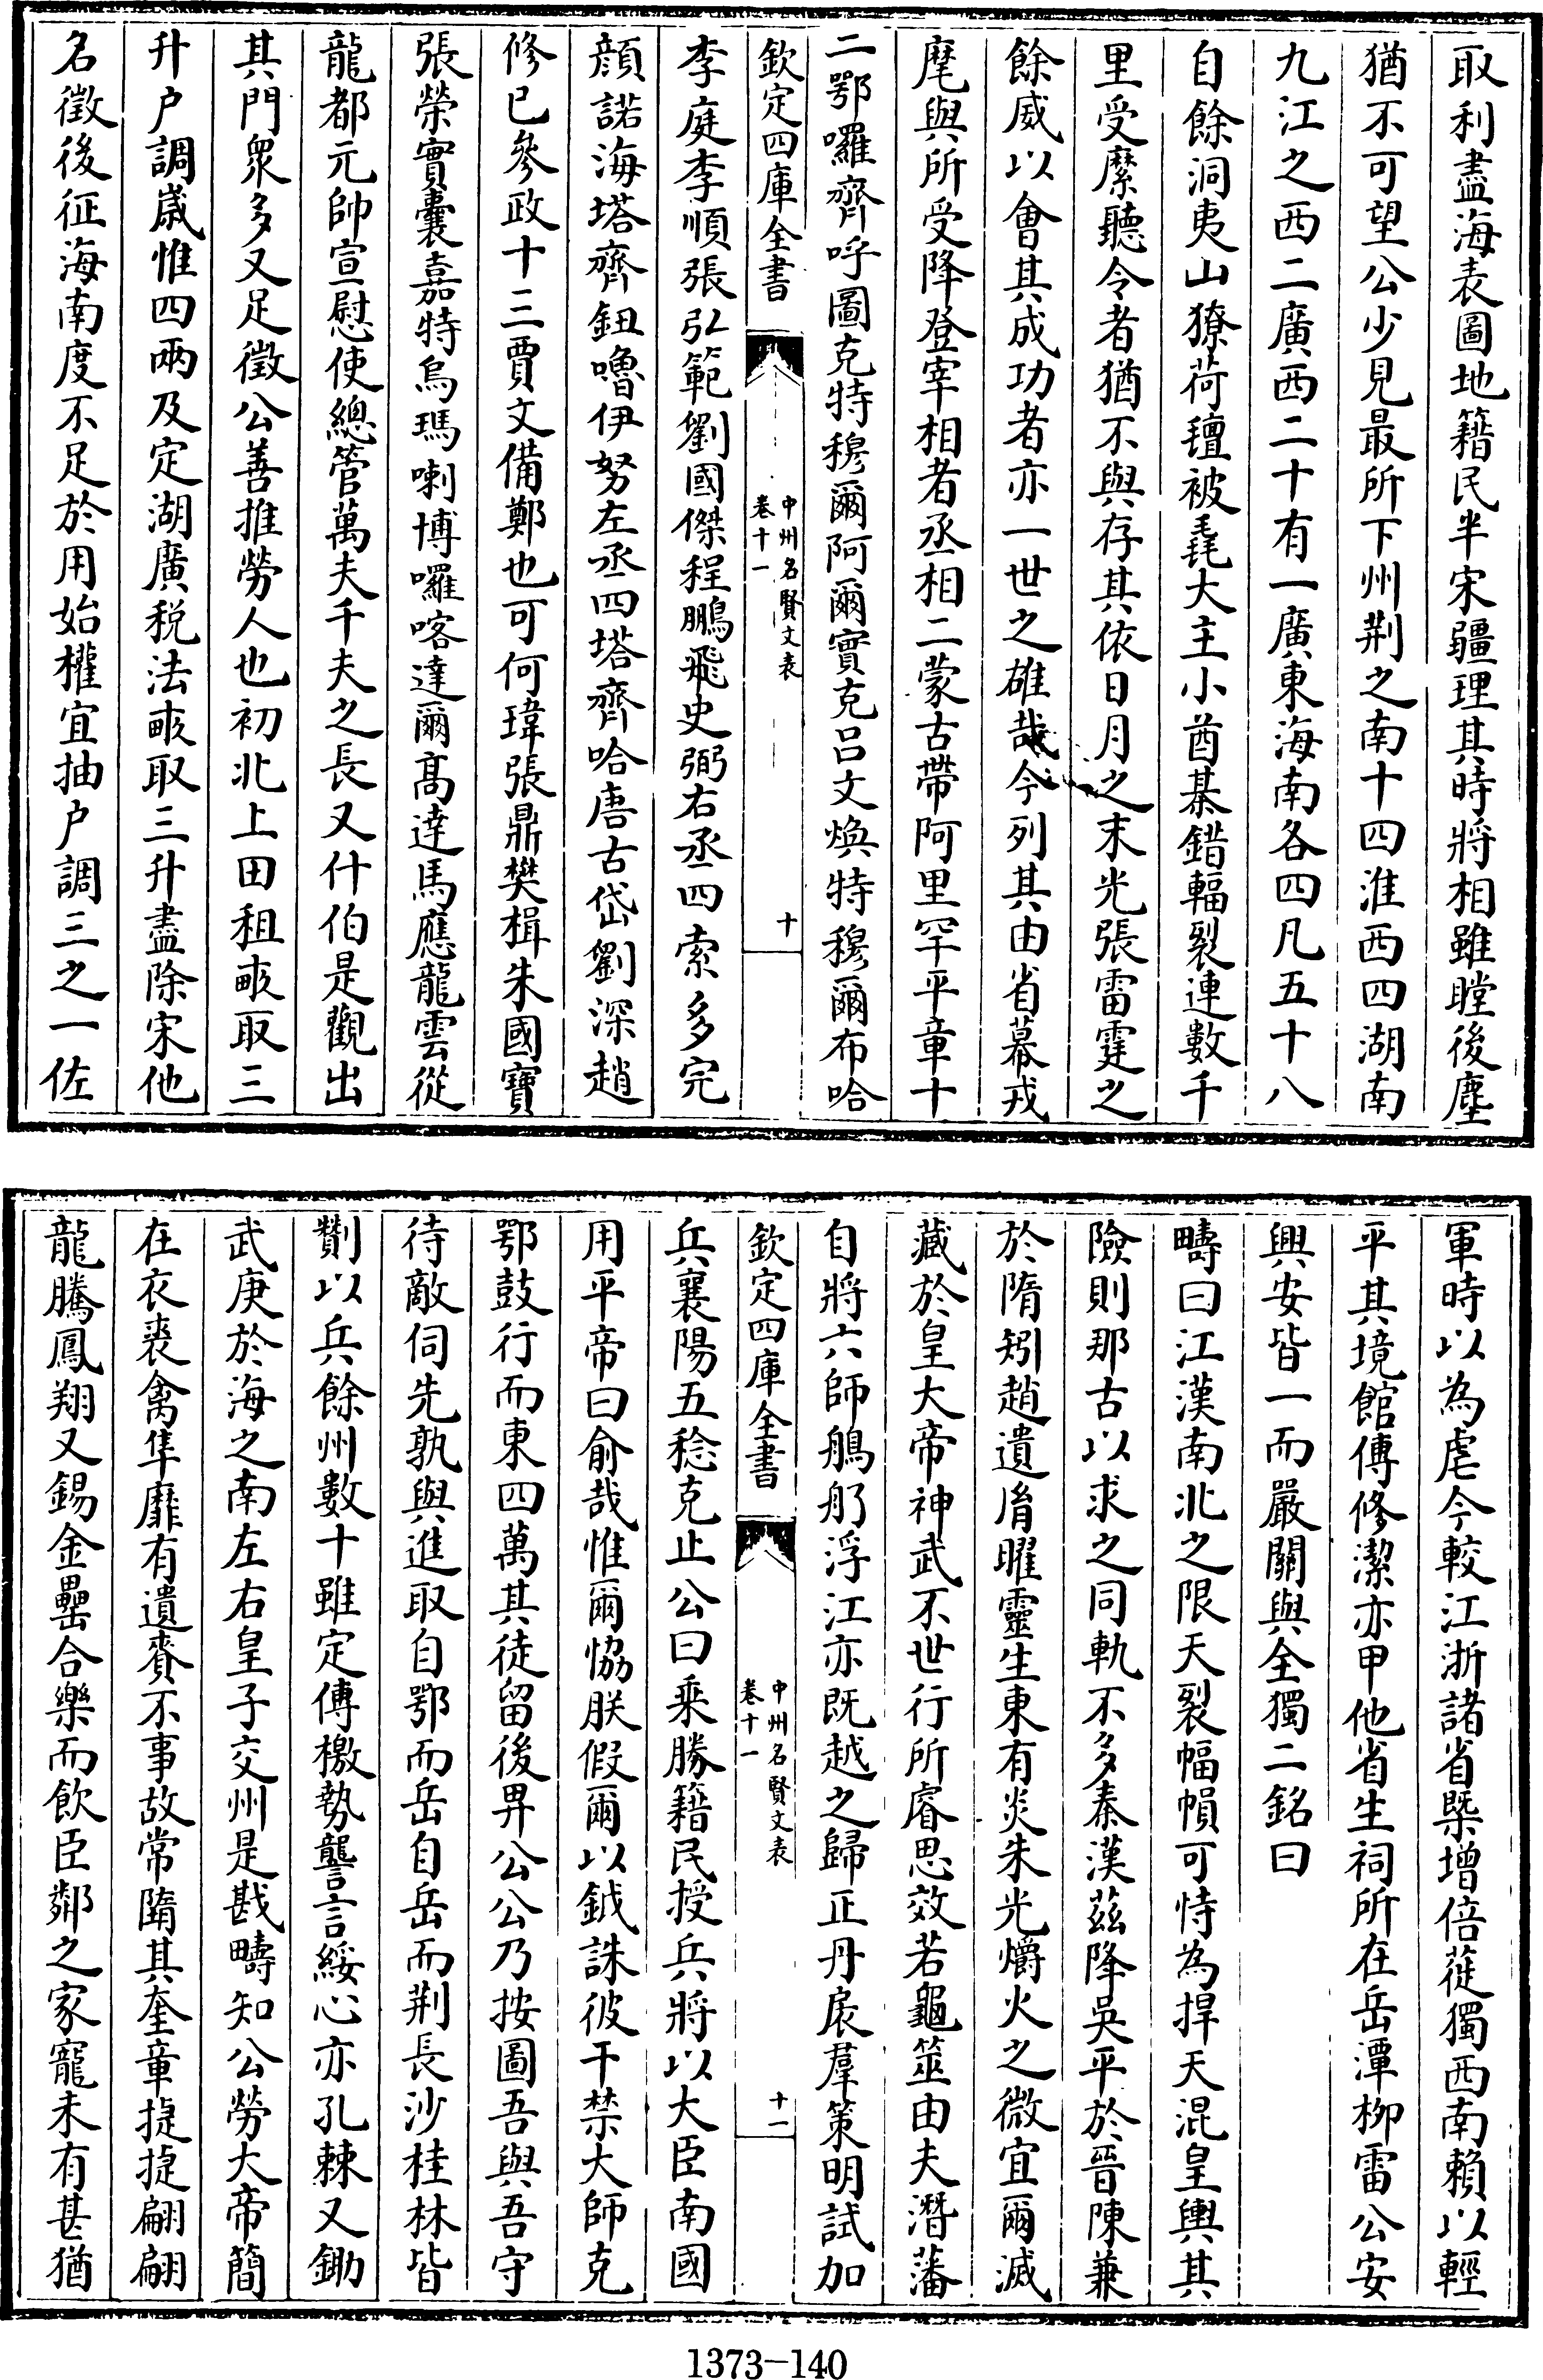 取利盡海表圖地籍民半宋疆理其時將相雖瞠後塵
猶不可望公少見最所下州荆之南十四淮西四湖南
九江之西二廣西二十有一廣東海南各四凡五十八
自餘洞夷山獠荷氊被毳大主小酋棊錯輻裂連數千
里受縻聽令者猶不與存其依日月之末光張雷霆之
餘威以會其成功者亦一世之雄哉今列其由省幕戎
麾與所受降登宰相者丞相二蒙古帶阿里罕平章十
二鄂囉齊呼圖克特穆爾阿爾實克呂文煥特穆爾布哈
欽定四庫全書
中州名賢文表
卷十一
十
李庭李順張弘範劉國傑程鵬飛史弼右丞四索多完
顔諾海塔齊鈕嚕伊努左丞四塔齊哈唐古岱劉深趙
修已參政十三賈文備鄭也可何瑋張鼎樊楫朱國寶
張榮實囊嘉特烏瑪喇博囉喀達爾髙逹馬應龍雲從
龍都元帥宣慰使總管萬夫千夫之長又什伯是觀出
其門衆多又足徵公善推勞人也初北上田租畝取三
升户調嵗惟四兩及定湖廣税法畝取三升盡除宋他
名徵後征海南度不足於用始權宜抽户調三之一佐
軍時以為虐今較江浙諸省槩增倍蓰獨西南賴以輕
平其境館傅修潔亦甲他省生祠所在岳潭柳雷公安
興安皆一而嚴關與全獨二銘曰
疇曰江漢南北之限天裂幅幁可恃為捍天混皇輿其
險則那古以求之同軌不多秦漢茲降吳平於晉陳兼
於隋矧趙遺胤曜靈生東有炎朱光爝火之微宜爾滅
藏於皇大帝神武不世行所睿思效若龜筮由夫潛藩
自將六師鵃舠浮江亦既越之歸正丹扆羣策明試加
欽定四庫全書
中州名賢文表
卷十一
十一
兵襄陽五稔克止公曰乘勝籍民授兵將以大臣南國
用平帝曰俞哉惟爾恊朕假爾以鉞誅彼干禁大師克
鄂鼓行而東四萬其徒留後畀公公乃按圖吾與吾守
待敵伺先孰與進取自鄂而岳自岳而荆長沙桂林皆
劗以兵餘州數十雖定傅檄勢讋言綏心亦孔棘又鋤
武庚於海之南左右皇子交州是戡疇知公勞大帝簡
在衣裘禽隼靡有遺賚不事故常隮其奎章㨗㨗翩翩
龍騰鳳翔又錫金罍合樂而飲臣鄰之家寵未有甚猶
1373-140